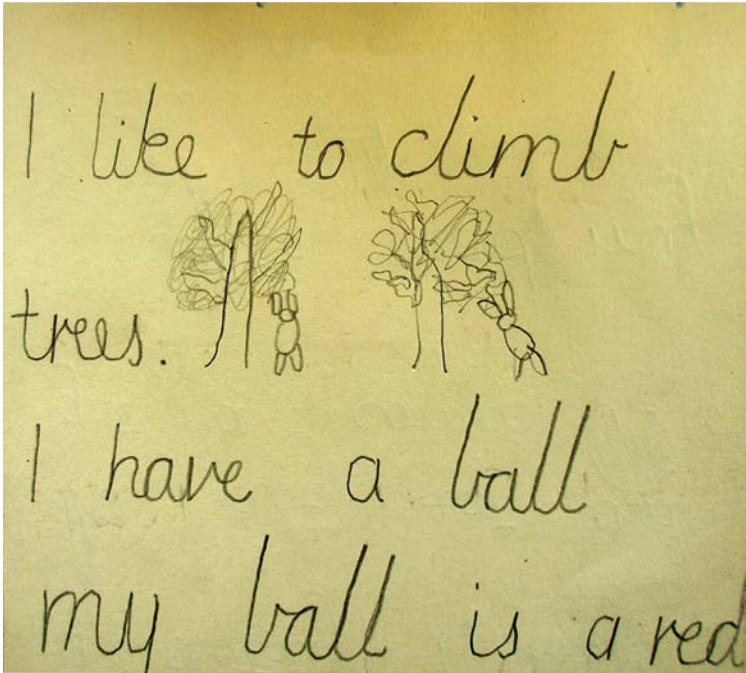 I like to climb
trees.
I have a ball
my ball is a red